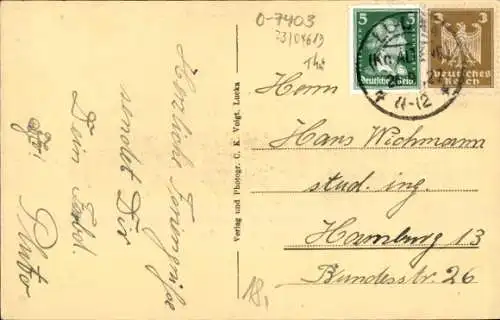 O-7403
Herzliche Feriengrüße
sendet Dir
Dein
Pluto
Verlag und Photogr. C. K. Voigt, Lucka
18,
5 5
Deutsches Reich
3 3
Deutsches
Reich
11-12
Herrn
Hans Wichmann
stud. ing.
Hamburg 13
Bundesstr. 26